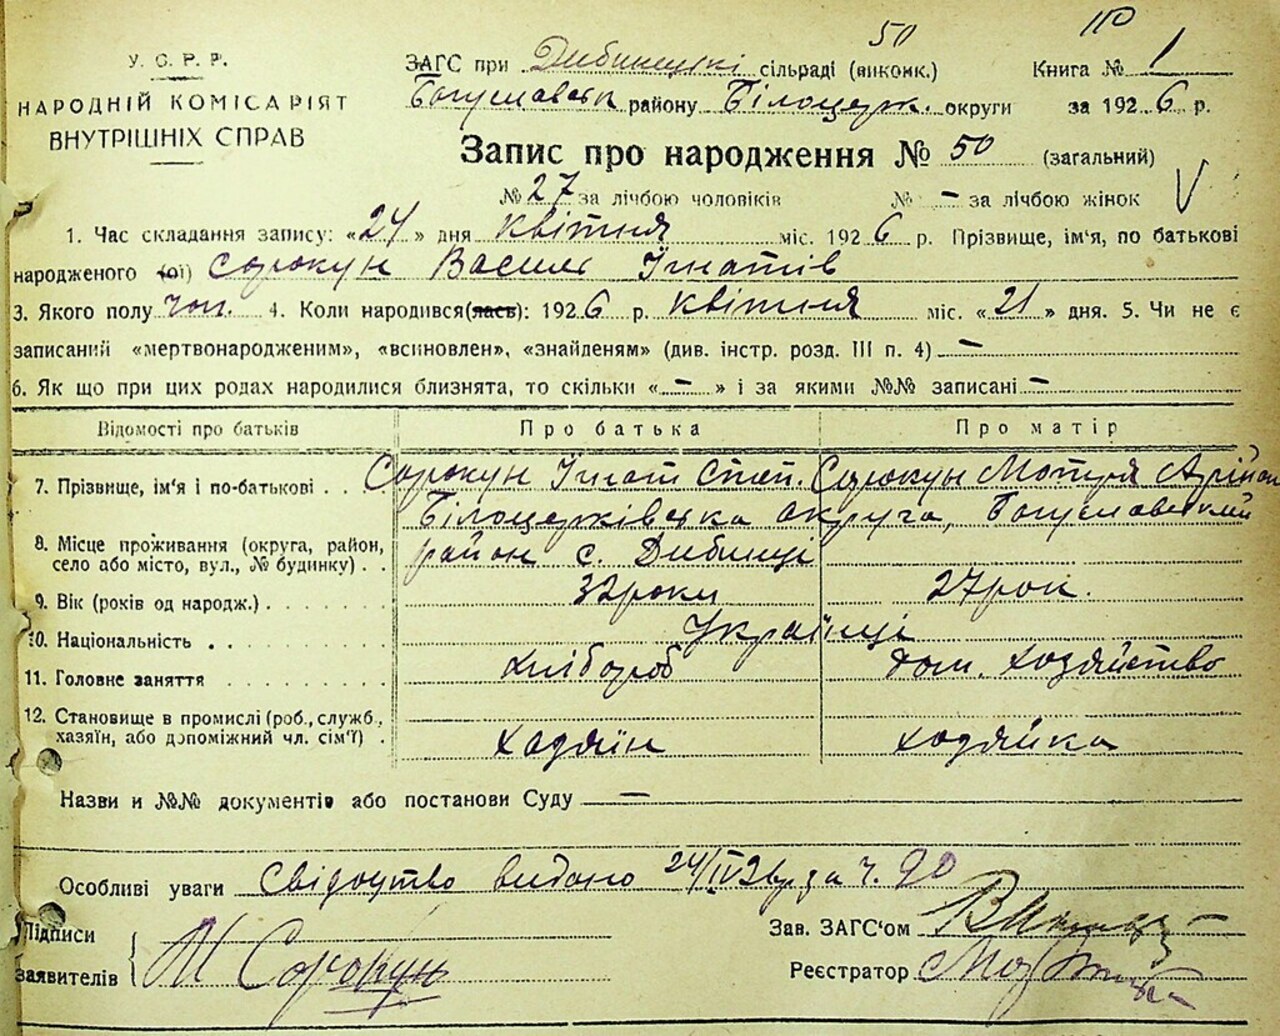 50 110
У. С. Р. Р.
НАРОДНІЙ КОМІСАРІЯТ
ВНУТРІШНІХ СПРАВ
ЗАГС при Дибинецькі сільраді (виконк.) Книга № 1
Богуславськ району Білоцерк. округи за 1926 р.
Запис про народження № 50 (загальний)
№ 27 за лічбою чоловіків № – за лічбою жінок
1. Час складання запису: «24» дня квітня міс. 1926 р. Прізвище, ім'я, по батькові
народженого (ої) Сорокун Василь Ігнатів
3. Якого полу чол. 4. Коли народився(лась): 1926 р. квітня міс. «21» дня. 5. Чи не є
записаний «мертвонародженим», «всиновлен», «знайденям» (див. інстр. розд. III п. 4) –
6. Як що при цих родах народилися близнята, то скільки «–» і за якими №№ записані –
Відомості про батьків Про батька Про матір
7. Прізвище, ім'я і по-батькові . . . Сорокун Ігнат Степ. Сорокун Мотря
Білоцерківська округа, Богуславський
8. Місце проживання (округа, район, район с. Дибинці
село або місто, вул., № будинку) . .
9. Вік (років од народж.) . . . . . . . 32 роки 27 рок.
10. Національність . . . . . . . . Українці
11. Головне заняття . . . . . . . . Хлібороб дом. хозяйство
12. Становище в промислі (роб., служб.,
хазяїн, або допоміжний чл. сім'ї) . хадяїн ходяйка
Назви и №№ документів або постанови Суду –
Особливі уваги Свідоцтво видано 24/IV 26 р за ч. 90
Підписи Зав. ЗАГС'ом
заявителів И Сорокун Реєстратор